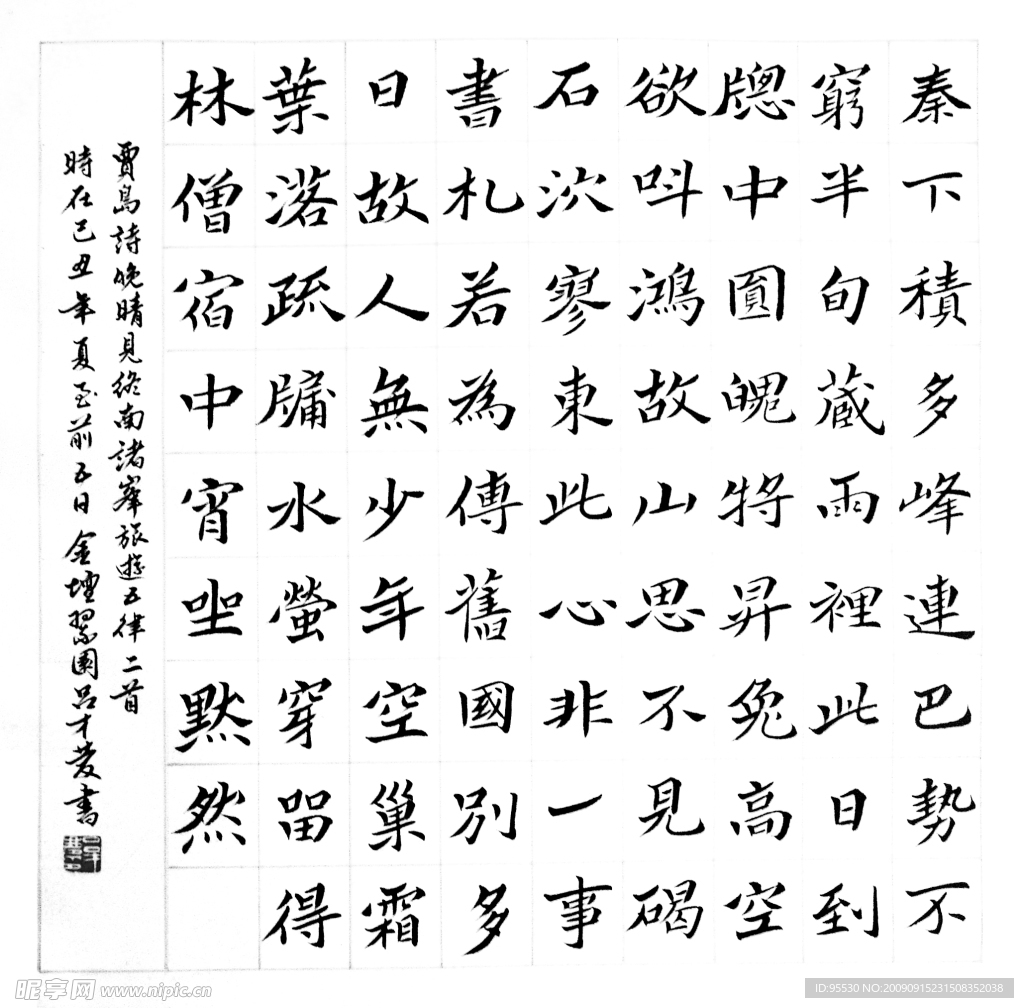 秦下積多峰連巴勢不
窮半旬蔵雨裡此日到
牕中圓魄將昇兔高空
欲呌鴻故山思不見碣
石泬寥東此心非一事
書札若為傳舊國別多
日故人無少年空巢霜
葉落疏牗水螢穿留得
林僧宿中宵坐默然
賈島詩晚晴見終南諸峯旅遊五律二首
時在己丑年夏至前五日金壇園吕才發書
昵享网 www.nipic.cn
ID:95530 NO:20090915231508352038